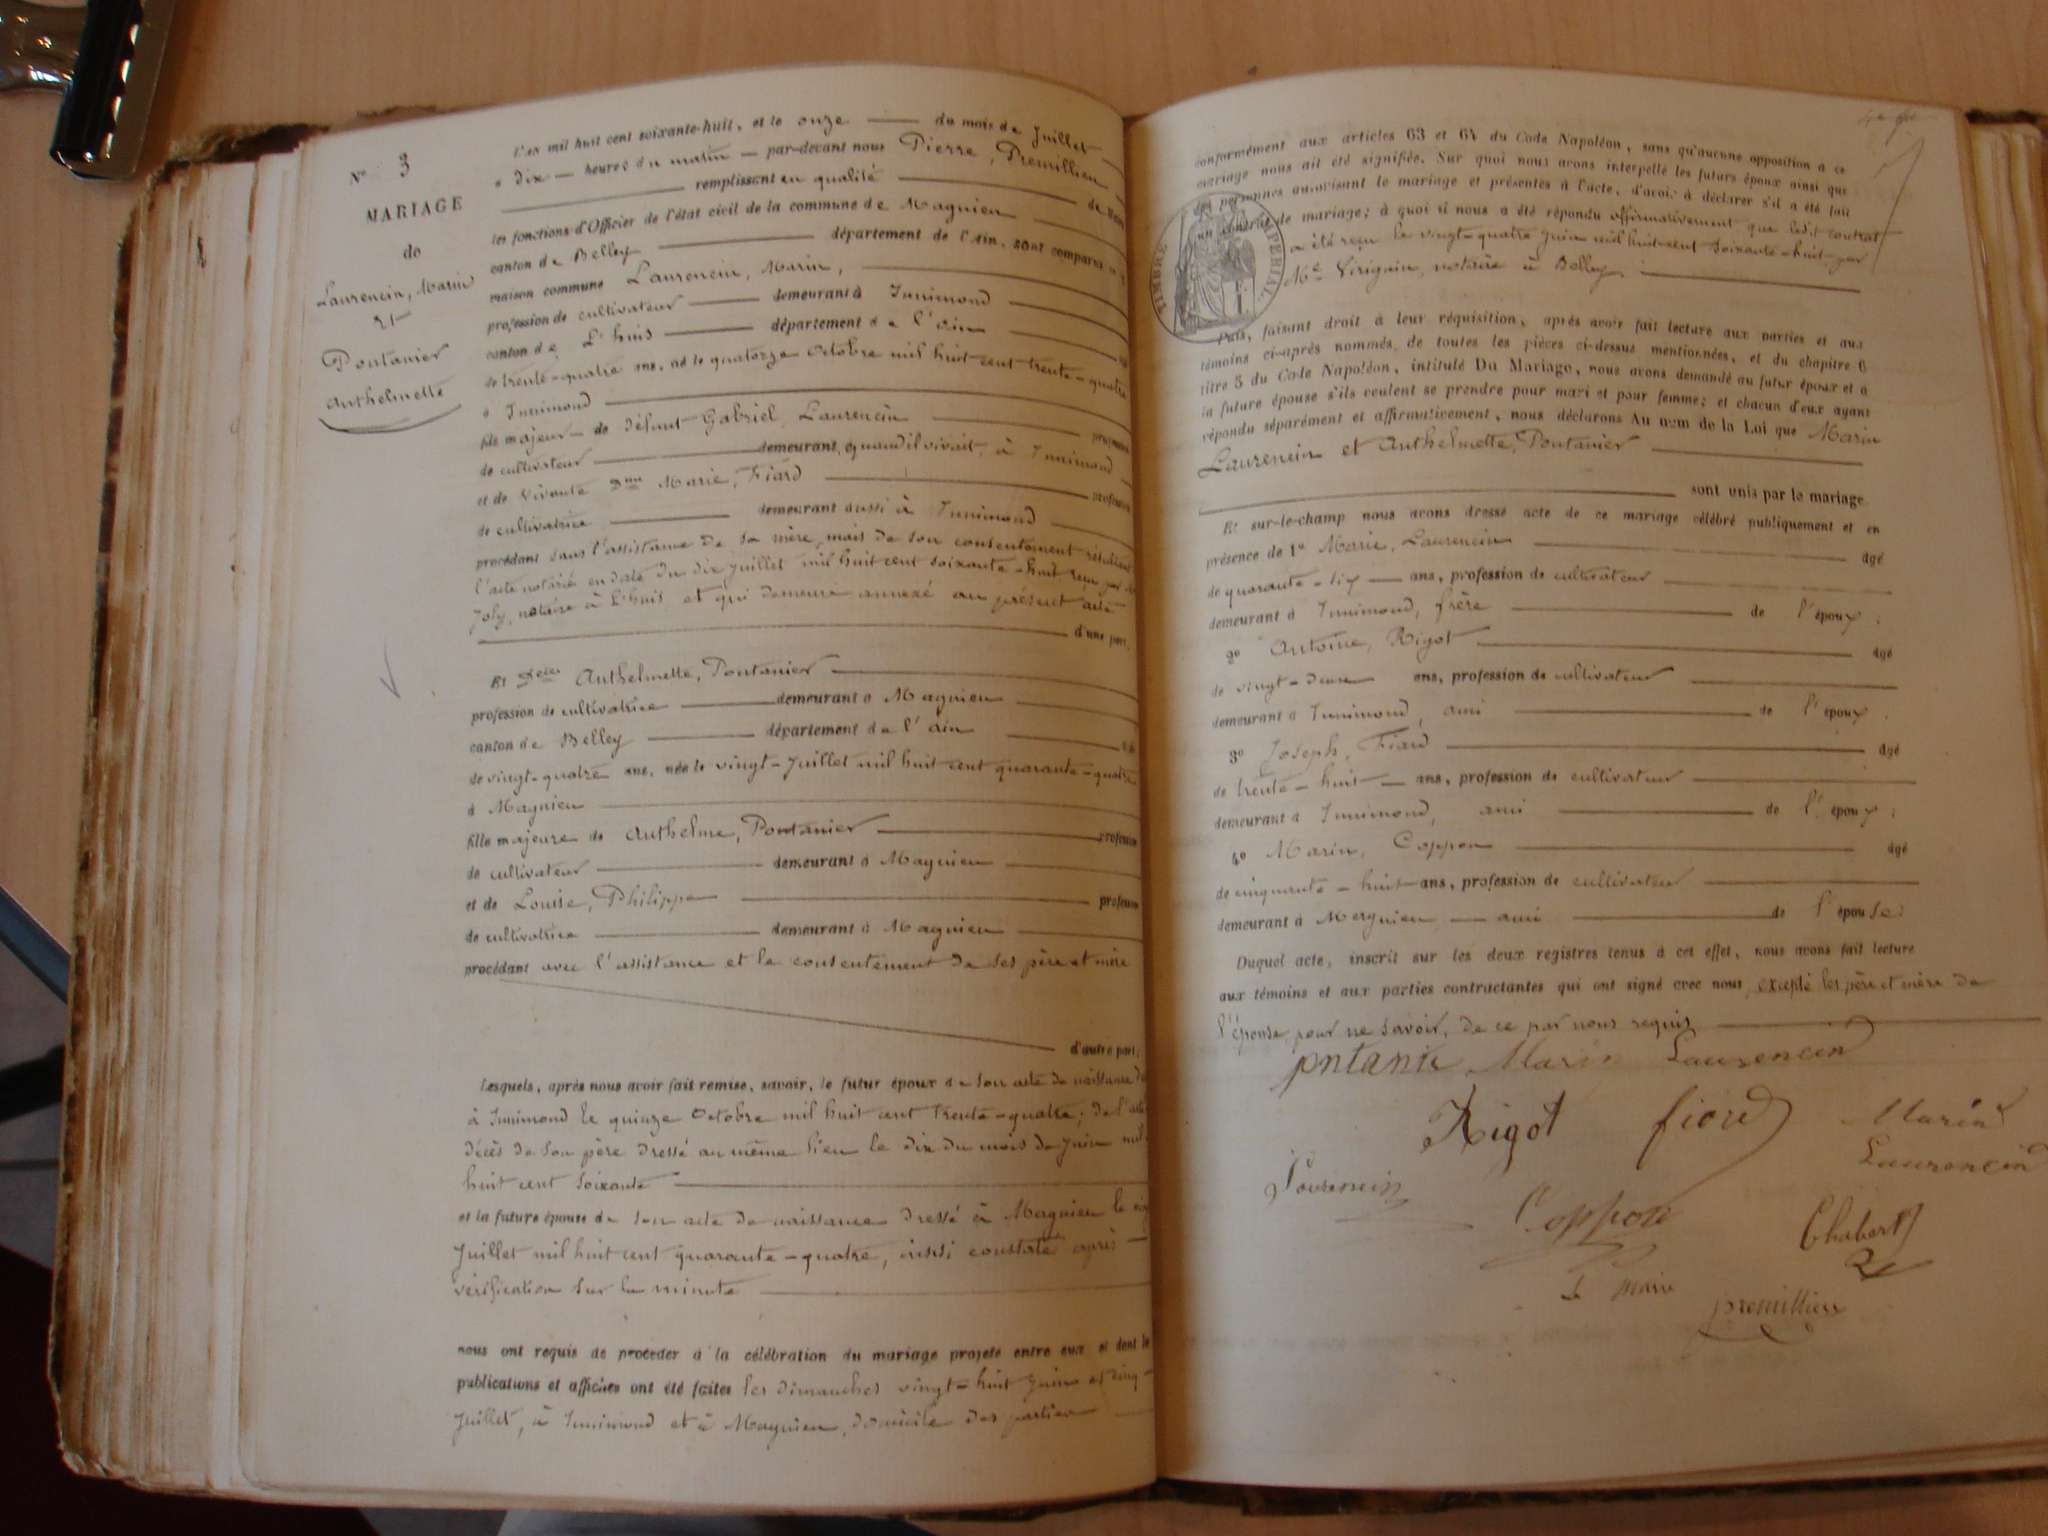 N° 3
MARIAGE
de
Laurencin, Marin
et
Pontanier
Anthelmette
L'an mil huit cent soixante-huit, et le onze du mois de Juillet
à dix heures du matin par-devant nous Pierre, Premillieu
remplissant en qualité de Maire
les fonctions d'Officier de l'état civil de la commune de Magnieu
canton de Belley département de l'Ain, sont comparus
maison commune Laurencin, Marin,
profession de cultivateur demeurant à Innimond
canton de L'huis département de l'ain
de trente-quatre ans, né le quatorze Octobre mil huit cent trente-quatre
à Innimond
fils majeur de défunt Gabriel, Laurencin profession
de cultivateur demeurant, quand il vivait, à Innimond
et de vivante Marie, Fiard profession
de cultivatrice demeurant aussi à Innimond
procédant sans l'assistance de sa mère, mais de son consentement résultant
l'acte notarié en date du dix Juillet mil huit cent soixante-huit reçu par
Joly, notaire à L'huis et qui demeure annexé au présent acte
d'une part,
Et Delle Anthelmette, Pontanier
profession de cultivatrice demeurant à Magnieu
canton de Belley département de l'ain
de vingt-quatre ans, née le vingt-Juillet mil huit cent quarante-quatre
à Magnieu
fille majeure de Anthelme, Pontanier profession
de cultivateur demeurant à Magnieu
et de Louise, Philippe profession
de cultivatrice demeurant à Magnieu
procédant avec l'assistance et le consentement de ses père et mère
d'autre part;
Lesquels, après nous avoir fait remise, savoir, le futur époux de son acte de naissance
à Innimond le quinze Octobre mil huit cent trente-quatre; de l'acte
décès de son père dressé au même lieu le dix du mois de Juin mil
huit cent soixante
et la future épouse de son acte de naissance dressé à Magnieu le
Juillet mil huit cent quarante-quatre, ainsi constaté après
vérification sur la minute
nous ont requis de procéder à la célébration du mariage projeté entre eux et dont les
publications et affiches ont été faites les dimanches vingt-huit Juin et cinq
Juillet, à Innimond et à Magnieu, domicile des parties
conformément aux articles 63 et 64 du Code Napoléon, sans qu'aucune opposition à ce
mariage nous ait été signifiée. Sur quoi nous avons interpellé les futurs époux ainsi que
des personnes autorisant le mariage et présentes à l'acte, d'avoir à déclarer s'il a été fait
un contrat de mariage; à quoi il nous a été répondu affirmativement que ledit contrat
a été reçu le vingt-quatre Juin mil huit-cent soixante-huit par
Me Virignin, notaire à Belley.
TIMBRE IMPÉRIAL
Puis, faisant droit à leur réquisition, après avoir fait lecture aux parties et aux
témoins ci-après nommés, de toutes les pièces ci-dessus mentionnées, et du chapitre 6
titre 5 du Code Napoléon, intitulé Du Mariage, nous avons demandé au futur époux et à
la future épouse s'ils veulent se prendre pour mari et pour femme; et chacun d'eux ayant
répondu séparément et affirmativement, nous déclarons Au nom de la Loi que Marin
Laurencin et Anthelmette, Pontanier
sont unis par le mariage.
Et sur-le-champ nous avons dressé acte de ce mariage célébré publiquement et en
présence de 1° Marie, Laurencin âgé
de quarante-six ans, profession de cultivateur
demeurant à Innimond, frère de l'époux;
2° Antoine, Rigot âgé
de vingt-deux ans, profession de cultivateur
demeurant à Innimond, ami de l'époux.
3° Joseph, Fiard âgé
de trente-huit ans, profession de cultivateur
demeurant à Innimond, ami de l'époux;
4° Marin, Coppon âgé
de cinquante-huit ans, profession de cultivateur
demeurant à Magnieu ami de l'épouse.
Duquel acte, inscrit sur les deux registres tenus à cet effet, nous avons fait lecture
aux témoins et aux parties contractantes qui ont signé avec nous excepté les père et mère de
l'épouse pour ne savoir, de ce par nous requis
pntanie Marin Laurencin
Rigot fiard Marin
Laurencin
Laurencin
Coppon Chabert
Le Maire
premillieu